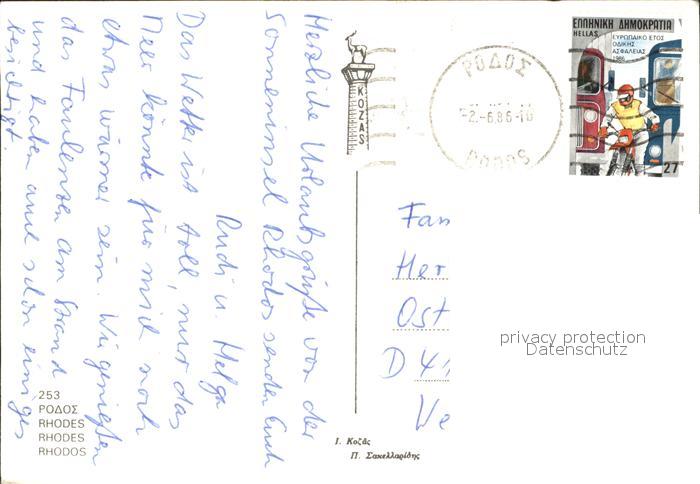 Herzliche Urlaubsgrüße von der
Sonneninsel Rhodos senden Euch
Rudi u. Helga
Das Wetter ist toll, nur das
Meer könnte für mich noch
etwas wärmer sein. Wir genießen
das Faulenzen am Strand
und haben auch schon einiges
besichtigt.
253
ΡΟΔΟΣ
RHODES
RHODES
RHODOS
KOZAS
Ι. Κοζᾶς
Π. Σακελλαρίδης
ΡΟΔΟΣ
-2.-6.86-10
RODOS
ΕΛΛΗΝΙΚΗ ΔΗΜΟΚΡΑΤΙΑ
HELLAS
ΕΥΡΩΠΑΙΚΟ ΕΤΟΣ
ΟΔΙΚΗΣ
ΑΣΦΑΛΕΙΑΣ
1986
27
Fam
Her
Ost
D 41
Ve
privacy protection
Datenschutz